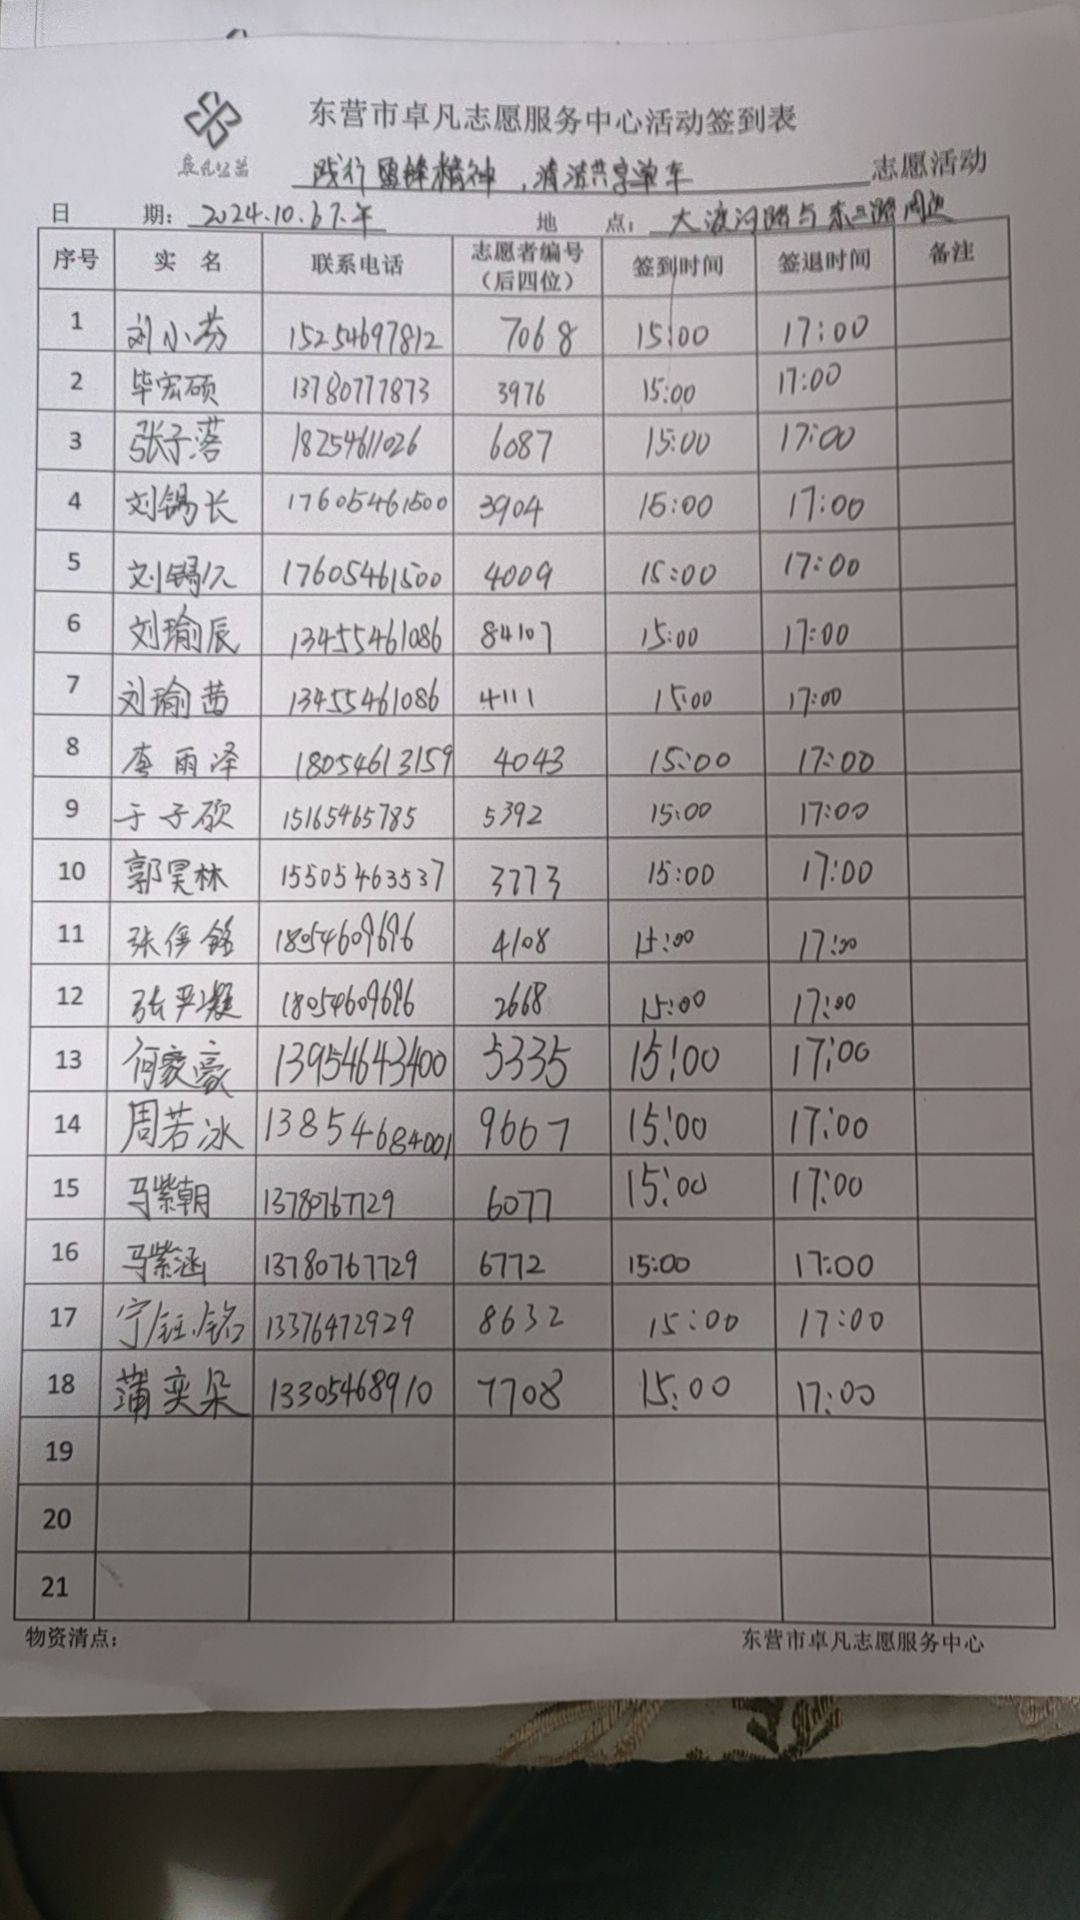 东营市卓凡志愿服务中心活动签到表
卓凡公益
践行雷锋精神,清洁共享单车 志愿活动
日 期: 2024.10. 地 点: 大渡河路与东二路周边
序号 实 名 联系电话 志愿者编号(后四位) 签到时间 签退时间 备注
1 刘小芬 15254697812 7068 15:00 17:00
2 毕宏硕 13780777873 3976 15:00 17:00
3 张子 18254611026 6087 15:00 17:00
4 刘锡长 17605461500 3904 15:00 17:00
5 刘锡久 17605461500 4009 15:00 17:00
6 刘瑜辰 13455461086 84107 15:00 17:00
7 刘瑜茜 13455461086 4111 15:00 17:00
8 李雨泽 18054613159 4043 15:00 17:00
9 于子硕 15165465785 5392 15:00 17:00
10 郭昊林 15505463537 3773 15:00 17:00
11 张倍铭 18054609696 4108 15:00 17:00
12 张严凝 18054609696 2668 15:00 17:00
13 何家豪 13954643400 5335 15:00 17:00
14 周若冰 13854684001 9667 15:00 17:00
15 马紫朝 13780767729 6077 15:00 17:00
16 马紫涵 13780767729 6772 15:00 17:00
17 宁钰铭 13376472929 8632 15:00 17:00
18 蒲奕朵 13305468910 7708 15:00 17:00
19
20
21
物资清点: 东营市卓凡志愿服务中心